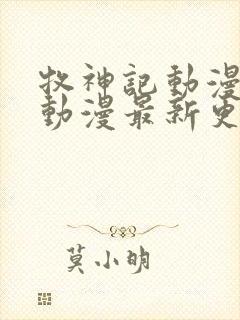 牧神記動漫
動漫最新更
莫小明